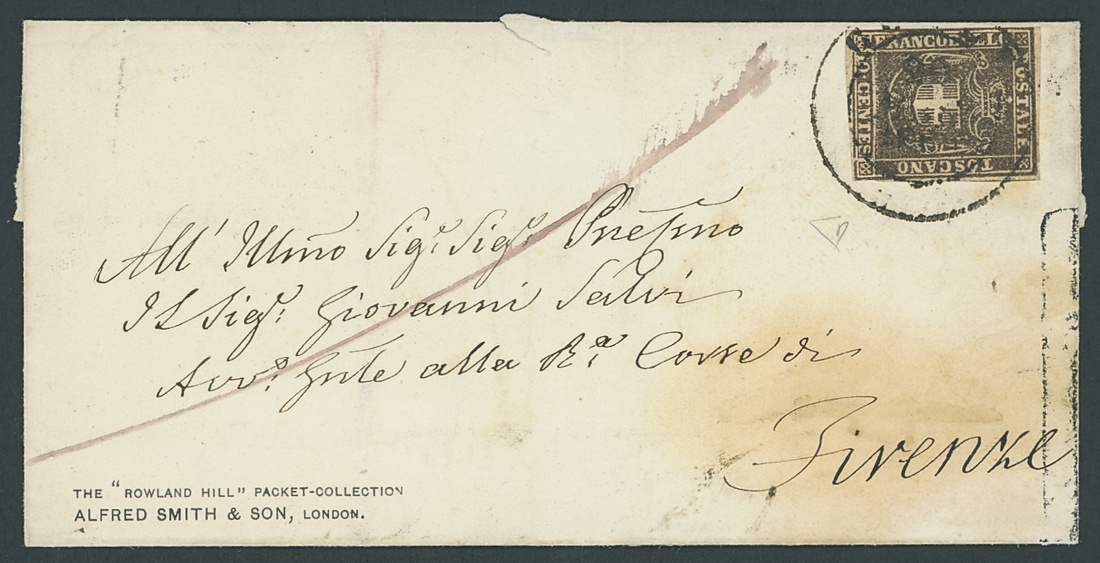 FRANCOBOLLO
POSTALE
TOSCANO
CENTES
All' Illmo Sigr. Sigr. Prefmo
Il Sigr. Giovanni Salvi
Avvo. Gnle alla Ra. Corte di
Firenze
THE "ROWLAND HILL" PACKET-COLLECTION
ALFRED SMITH & SON, LONDON.